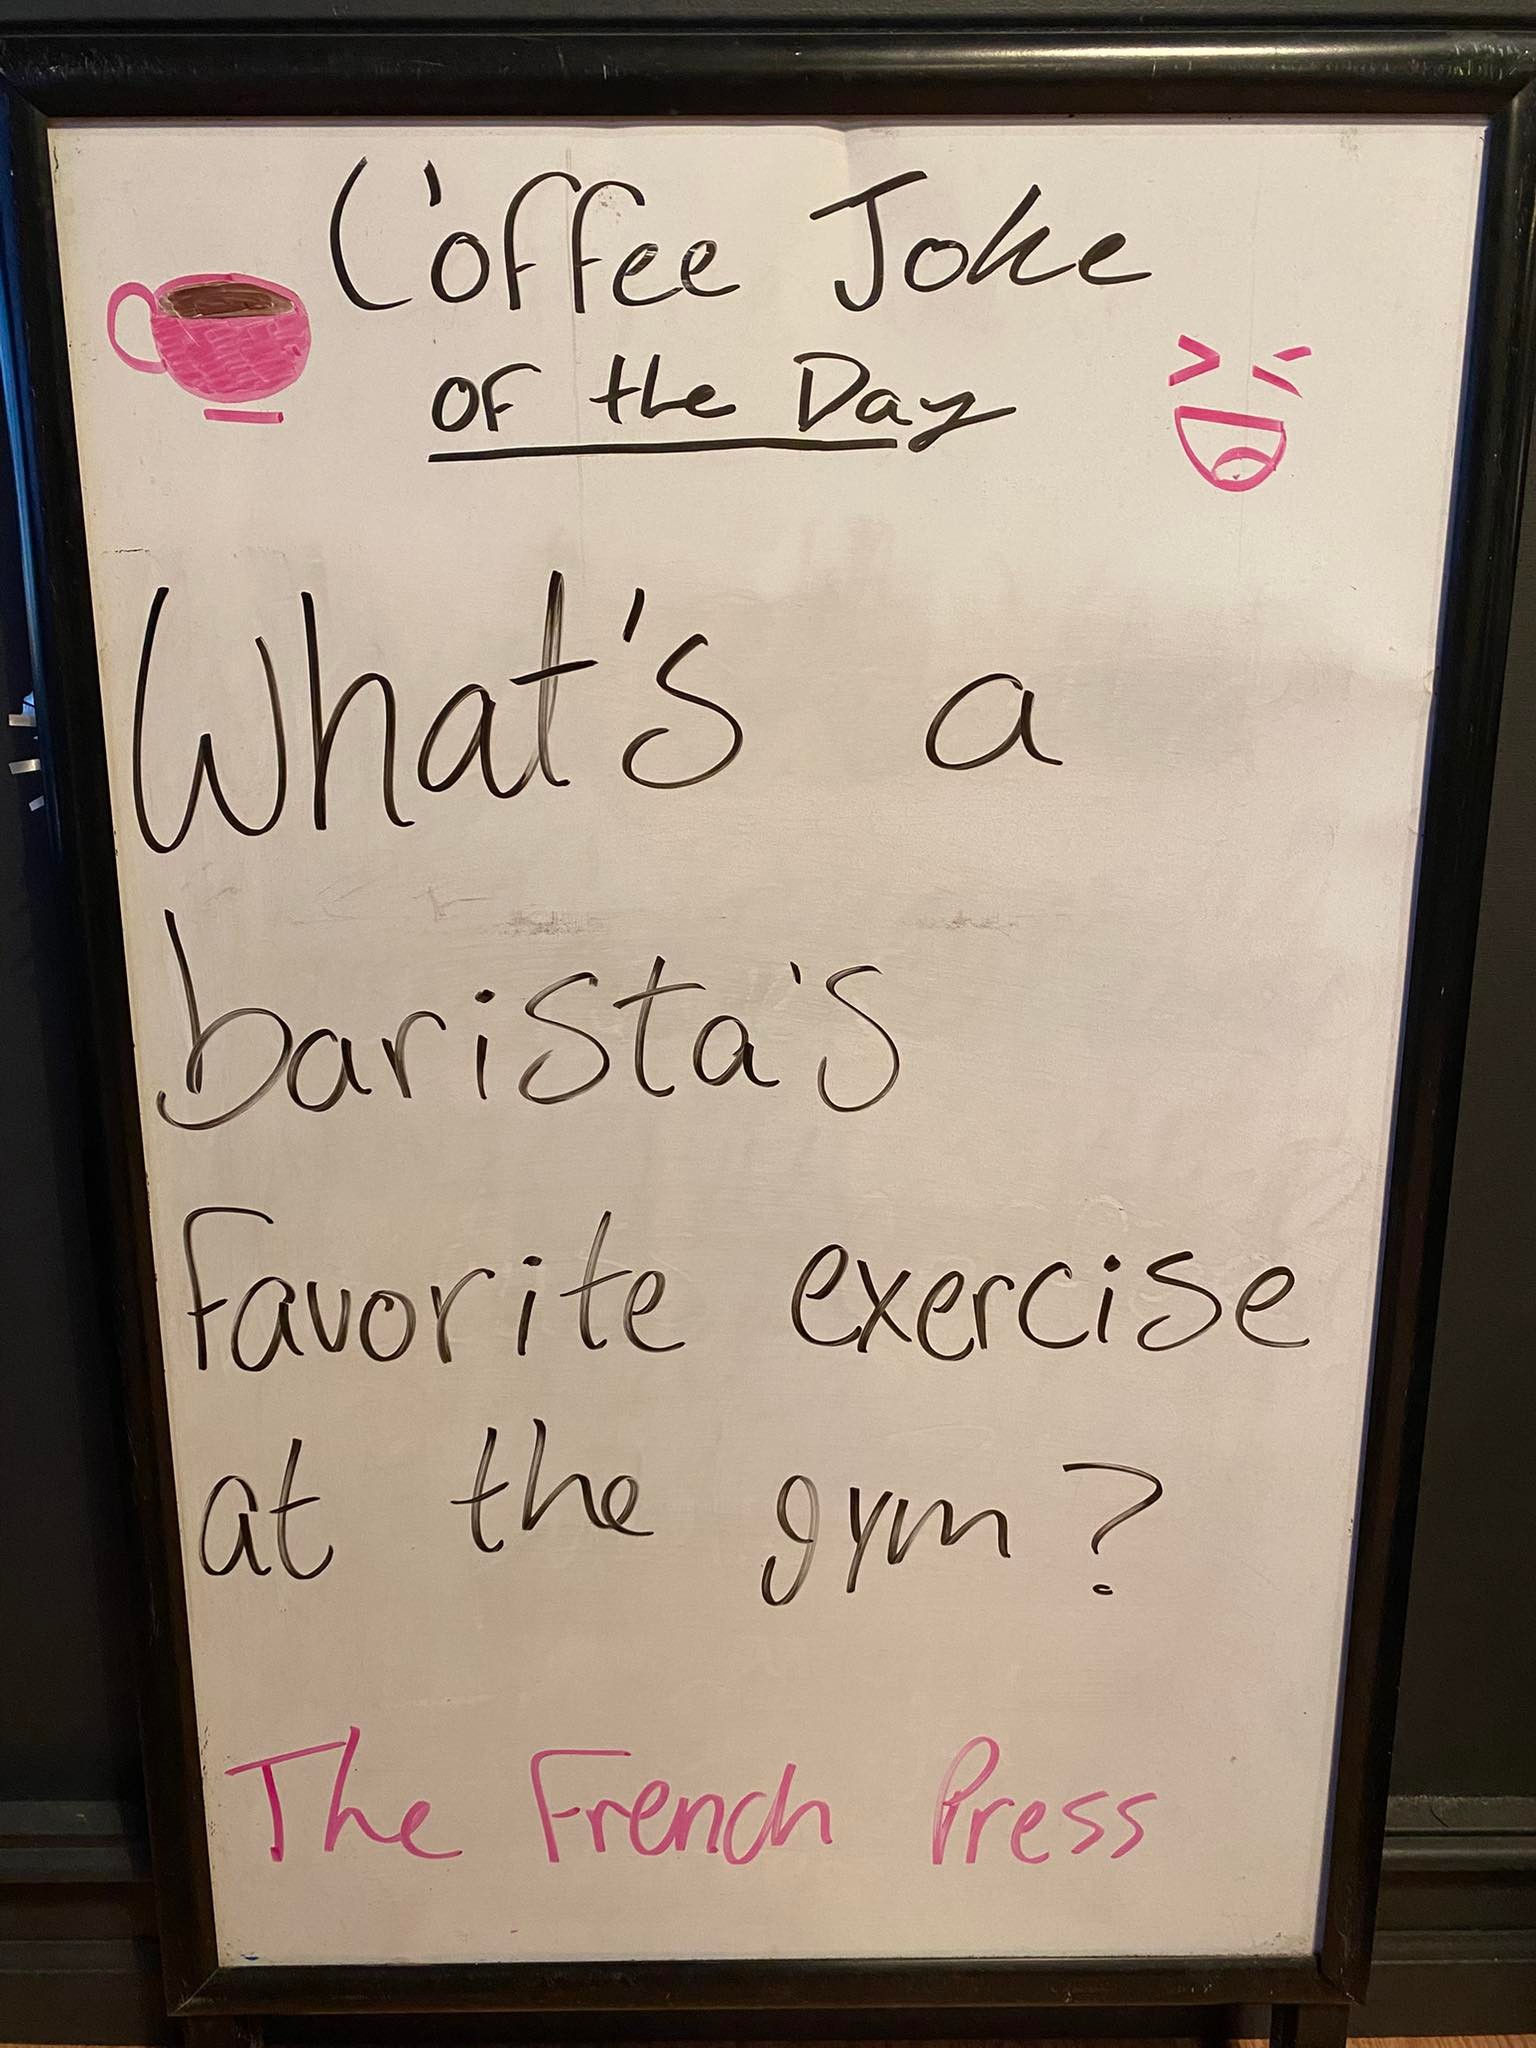 Coffee Joke
of the Day
What's a
barista's
favorite exercise
at the gym?
The French Press